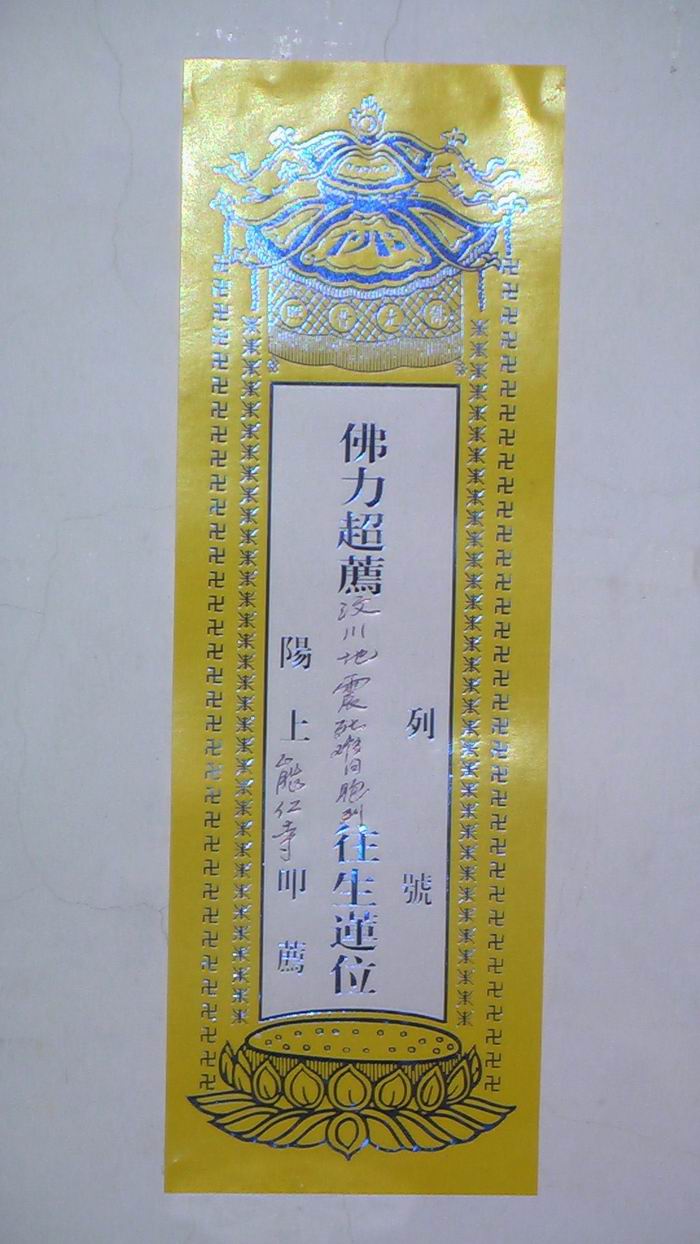 列號
佛力超薦汶川地震死难同胞们往生蓮位
陽上能仁寺叩薦